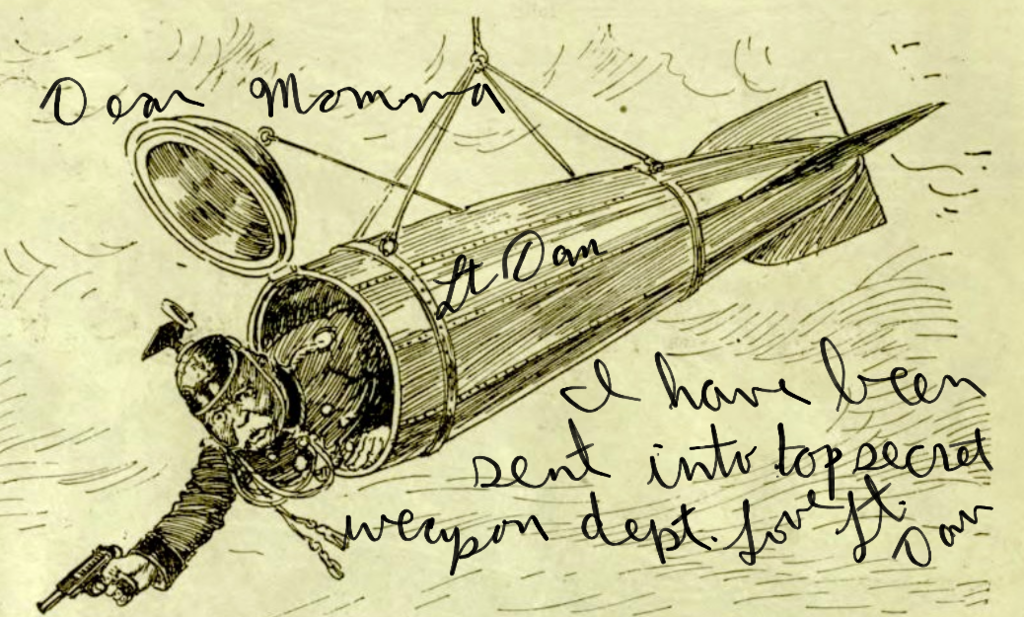 Dear Momma
Lt Dan
I have been
sent into top secret
weapon dept. Love Lt.
Dan